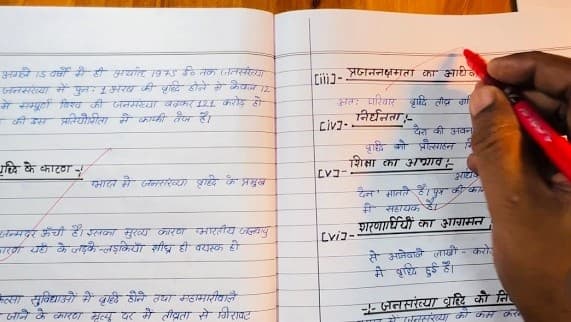 अगले 15 वर्षों में ही अर्थात 1975 ई० तक जनसंख्या
जनसंख्या में पुनः 1 अरब की वृद्धि होने में केवल 12
में सम्पूर्ण विश्व की जनसंख्या बढ़कर 121 करोड़ हो
की इस प्रतियोगिता में काफी तेज है।
वृद्धि के कारण -:
भारत में जनसंख्या वृद्धि के प्रमुख
जन्मदर ऊँची है। इसका मुख्य कारण भारतीय जलवायु
कारण यहाँ के लड़के-लड़कियाँ शीघ्र ही वयस्क हो
सुविधाओं में वृद्धि होने तथा महामारी
जाने के कारण मृत्यु दर में तीव्रता से गिरावट
[iii]- प्रजननक्षमता का
अतः परिवार वृद्धि तीव्र
[iv]- निर्धनता :-
देश की
वृद्धि को प्रोत्साहन
[v]- शिक्षा का अभाव :-
देन' मानते है। पुत्र की
में सहायक है।
[vi]- शरणार्थियों का आगमन
से आनेवाले लाखों - करो
में वृद्धि हुई है।
-:- जनसंख्या वृद्धि को
में जनसंख्या को कम